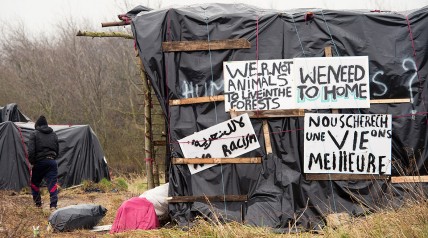 WE R NOT
ANIMALS
TO LIVE IN THE
FORESTS
WE NEED
TO HOME
HUM
S ?
NO RACISM
NOUS CHERECH
UNE VIE ons
MEILLEURE